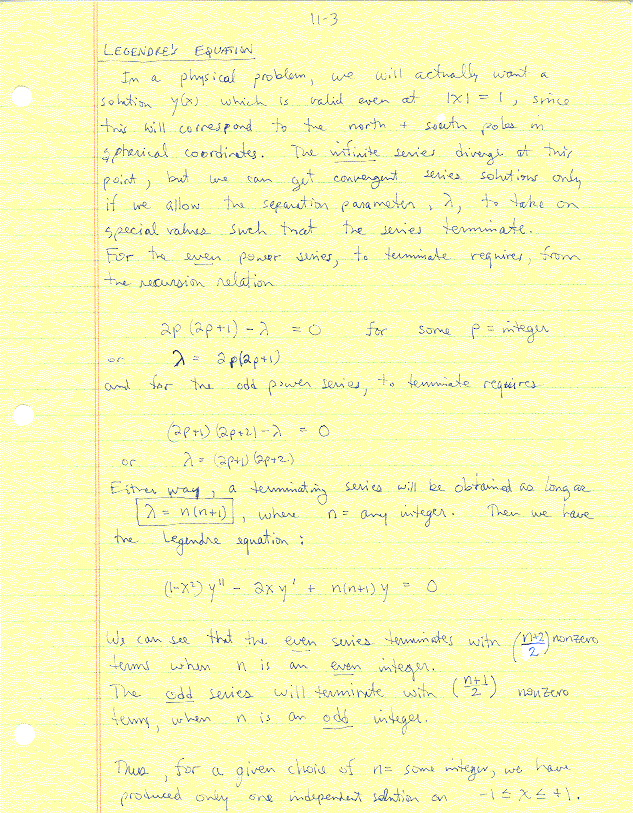 11-3
LEGENDRE'S EQUATION
In a physical problem, we will actually want a
solution y(x) which is valid even at |x| = 1, since
this will correspond to the north + south poles in
spherical coordinates. The infinite series diverge at this
point, but we can get convergent series solutions only
if we allow the separation parameter, λ, to take on
special values such that the series terminate.
For the even power series, to terminate requires, from
the recursion relation
2p(2p+1) - λ = 0 for some p = integer
or λ = 2p(2p+1)
and for the odd power series, to terminate requires
(2p+1)(2p+2) - λ = 0
or λ = (2p+1)(2p+2)
Either way, a terminating series will be obtained as long as
λ = n(n+1), where n = any integer. Then we have
the Legendre equation:
(1-x²) y'' - 2xy' + n(n+1) y = 0
We can see that the even series terminates with (n+2/2) nonzero
terms when n is an even integer.
The odd series will terminate with (n+1/2) nonzero
terms, when n is an odd integer.
Thus, for a given choice of n = some integer, we have
produced only one independent solution on -1 ≤ x ≤ +1.